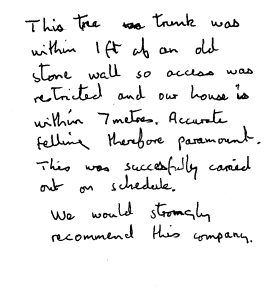 This tree trunk was
within 1ft of an old
stone wall so access was
restricted and our house is
within 7 metres. Accurate
felling therefore paramount.
This was succesfully carried
out on schedule.
We would strongly
recommend this company.